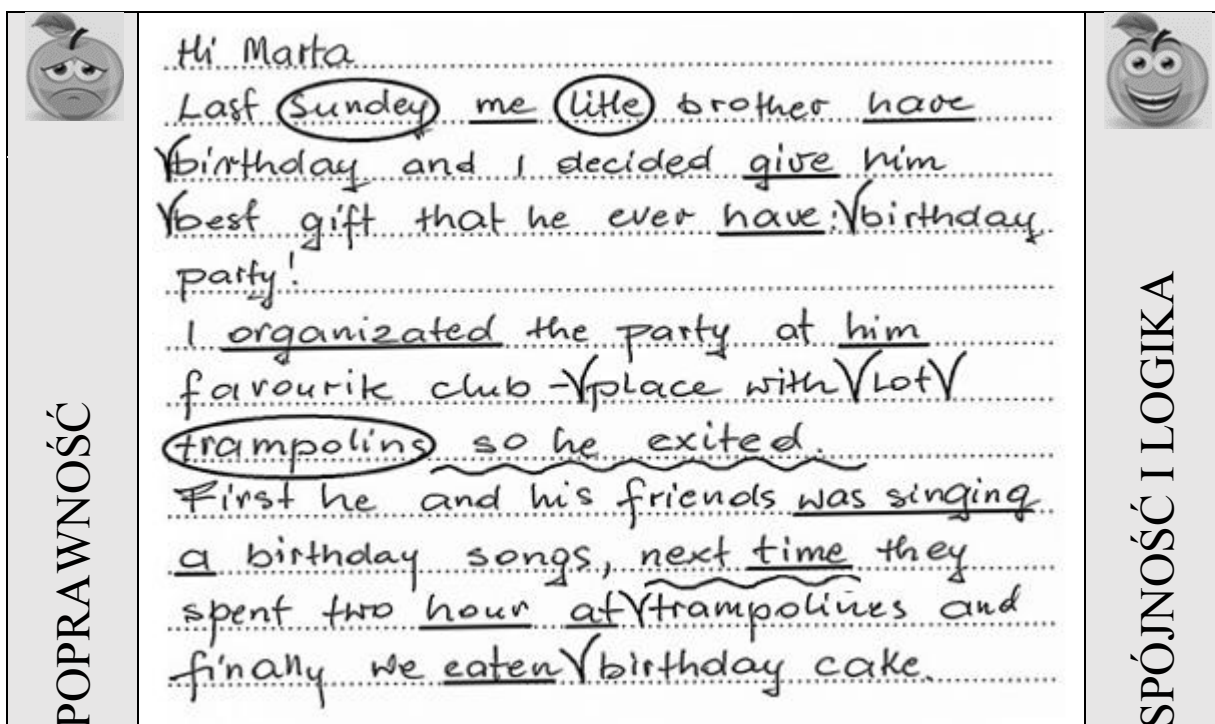 POPRAWNOŚĆ
Hi Marta
Last Sundey me litle brother have
birthday and I decided give him
best gift that he ever have: birthday
party!
I organizated the party at him
favourite club - place with lot
trampolins so he exited.
First he and his friends was singing
a birthday songs, next time they
spent two hour at trampolines and
finally we eaten birthday cake.
SPÓJNOŚĆ I LOGIKA